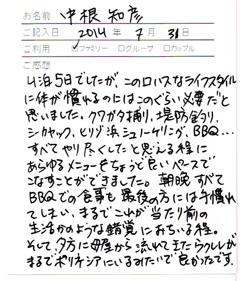 お名前 中根 知彦
ご記入日 2014 年 7 月 31 日
ご利用 ☑ファミリー □グループ □カップル
ご感想
4泊5日でしたが、このロハスなライフスタイル
に体が慣れるのにはこのぐらい必要だと
思いました。クワガタ捕り、堤防釣り、
シーカヤック、ヒリゾ浜シュノーケリング、BBQ…
すべてやり尽くしたと思える程に
あらゆるメニューをちょうど良いペースで
こなすことができました。朝晩すべて
BBQでの食事も最後の方には手慣れ
てしまい、まるでこれが当たり前の
生活かのような錯覚におちいる程。
そして、夕方に母屋から流れて来たウクレレが
まるでポリネシアにいるみたいで良かったです。